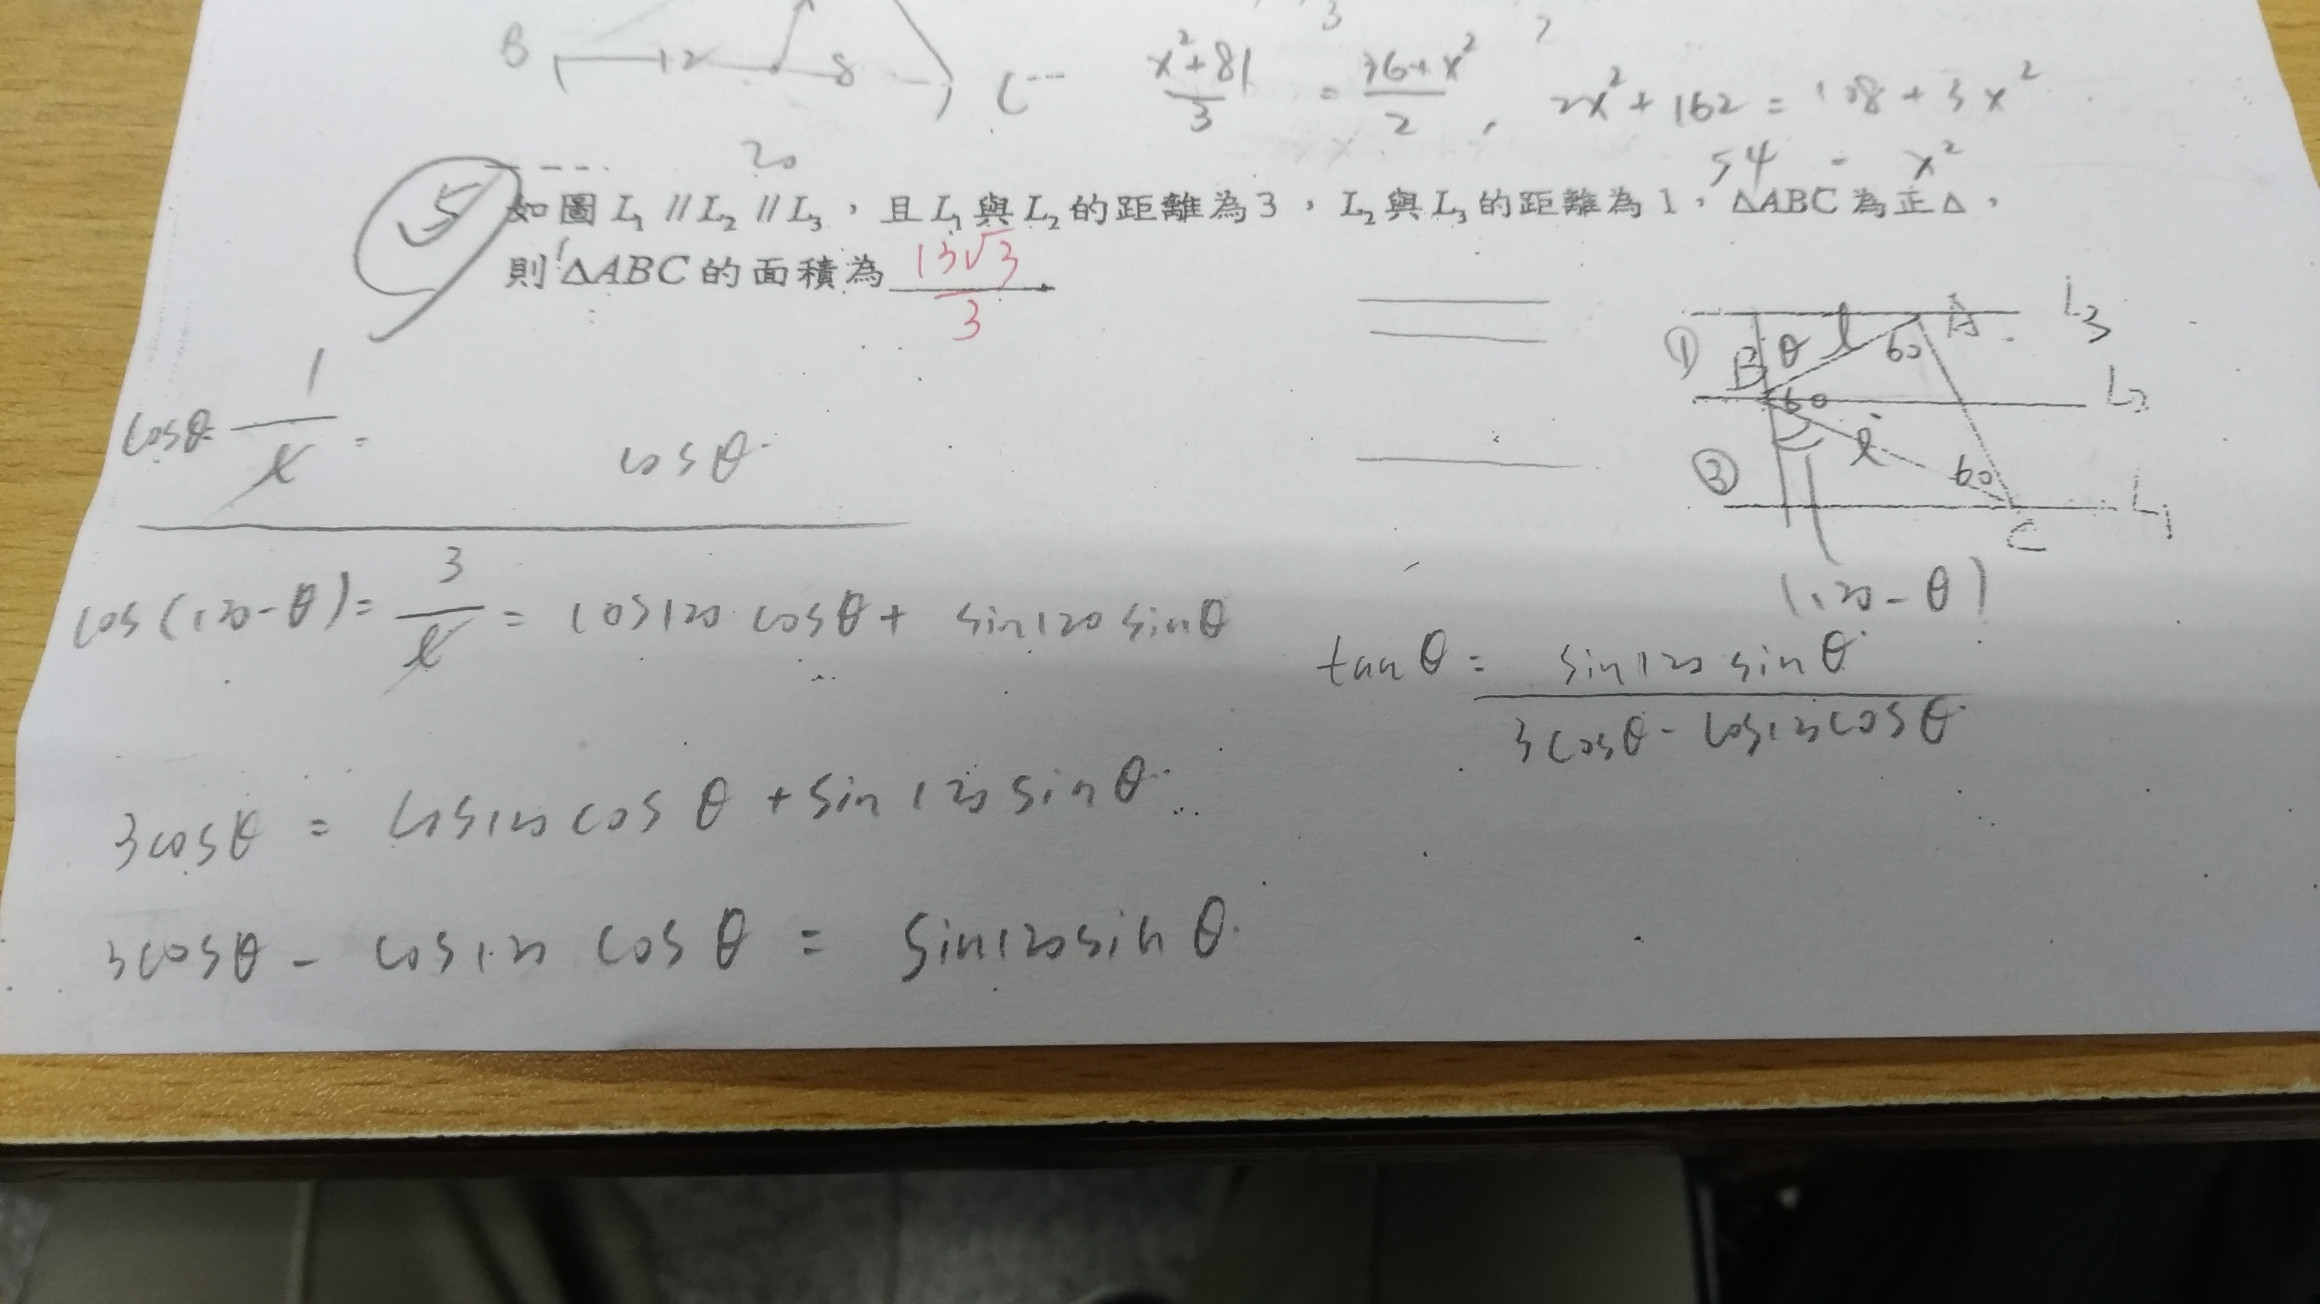 B 12 8 C
20
x²+81 / 3 = 36+x² / 2 , 2x²+162 = 108+3x²
54 = x²
5 如圖 L₁ // L₂ // L₃,且 L₁ 與 L₂ 的距離為 3,L₂ 與 L₃ 的距離為 1,△ABC 為正△,
則 △ABC 的面積為 13√3 / 3
① B θ l 60 A L₃
60 L₂
③ l 60 L₁
C
(120-θ)
cosθ = 1/l =
cosθ
cos(120-θ) = 3/l = cos120 cosθ + sin120 sinθ
tanθ = sin120 sinθ / 3cosθ - cos120cosθ
3cosθ = cos120 cosθ + sin120 sinθ
3cosθ - cos120 cosθ = sin120 sinθ